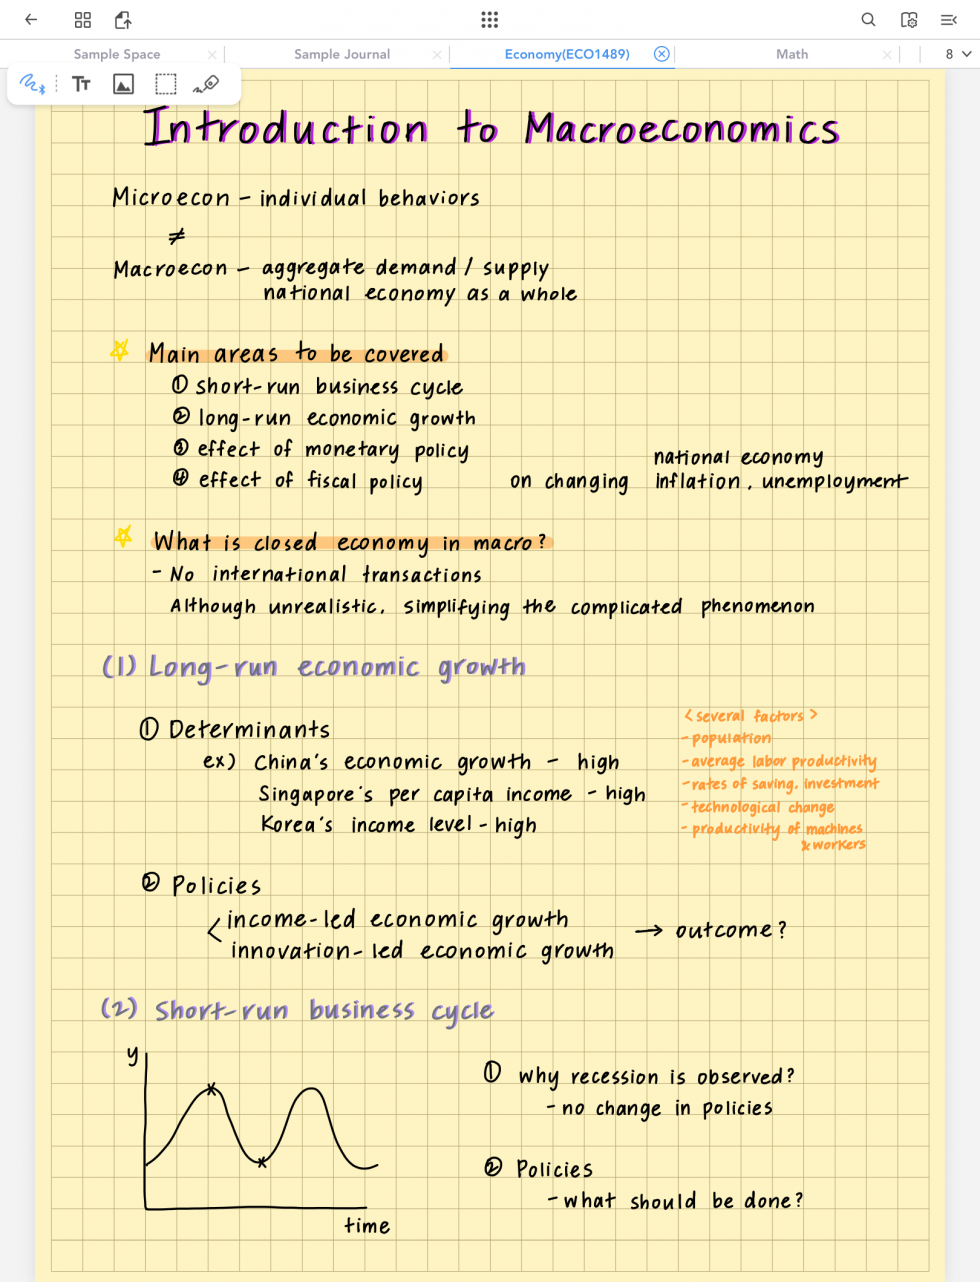 Sample Space
Sample Journal
Economy(ECO1489)
Math
8
TT
Introduction to Macroeconomics
Microecon - individual behaviors
≠
Macroecon - aggregate demand / supply
national economy as a whole
Main areas to be covered
① short-run business cycle
② long-run economic growth
③ effect of monetary policy
④ effect of fiscal policy
on changing
national economy
inflation, unemployment
What is closed economy in macro?
- No international transactions
Although unrealistic, simplifying the complicated phenomenon
(1) Long-run economic growth
① Determinants
ex) China's economic growth - high
Singapore's per capita income - high
Korea's income level - high
<several factors>
- population
- average labor productivity
- rates of saving, investment
- technological change
- productivity of machines
& workers
② Policies
< income-led economic growth
innovation-led economic growth
→ outcome?
(2) Short-run business cycle
y
time
① why recession is observed?
- no change in policies
② Policies
- what should be done?